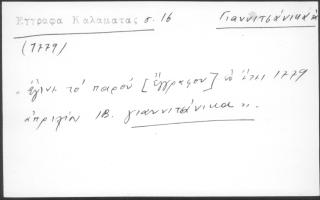 Έγγραφα Καλαματας σ. 16 Γιαννιτσάνικα
(1779)
" έγινε το παρού [έγγραφου] 1779
απριλίη 18. γιαννιτσάνικα ".